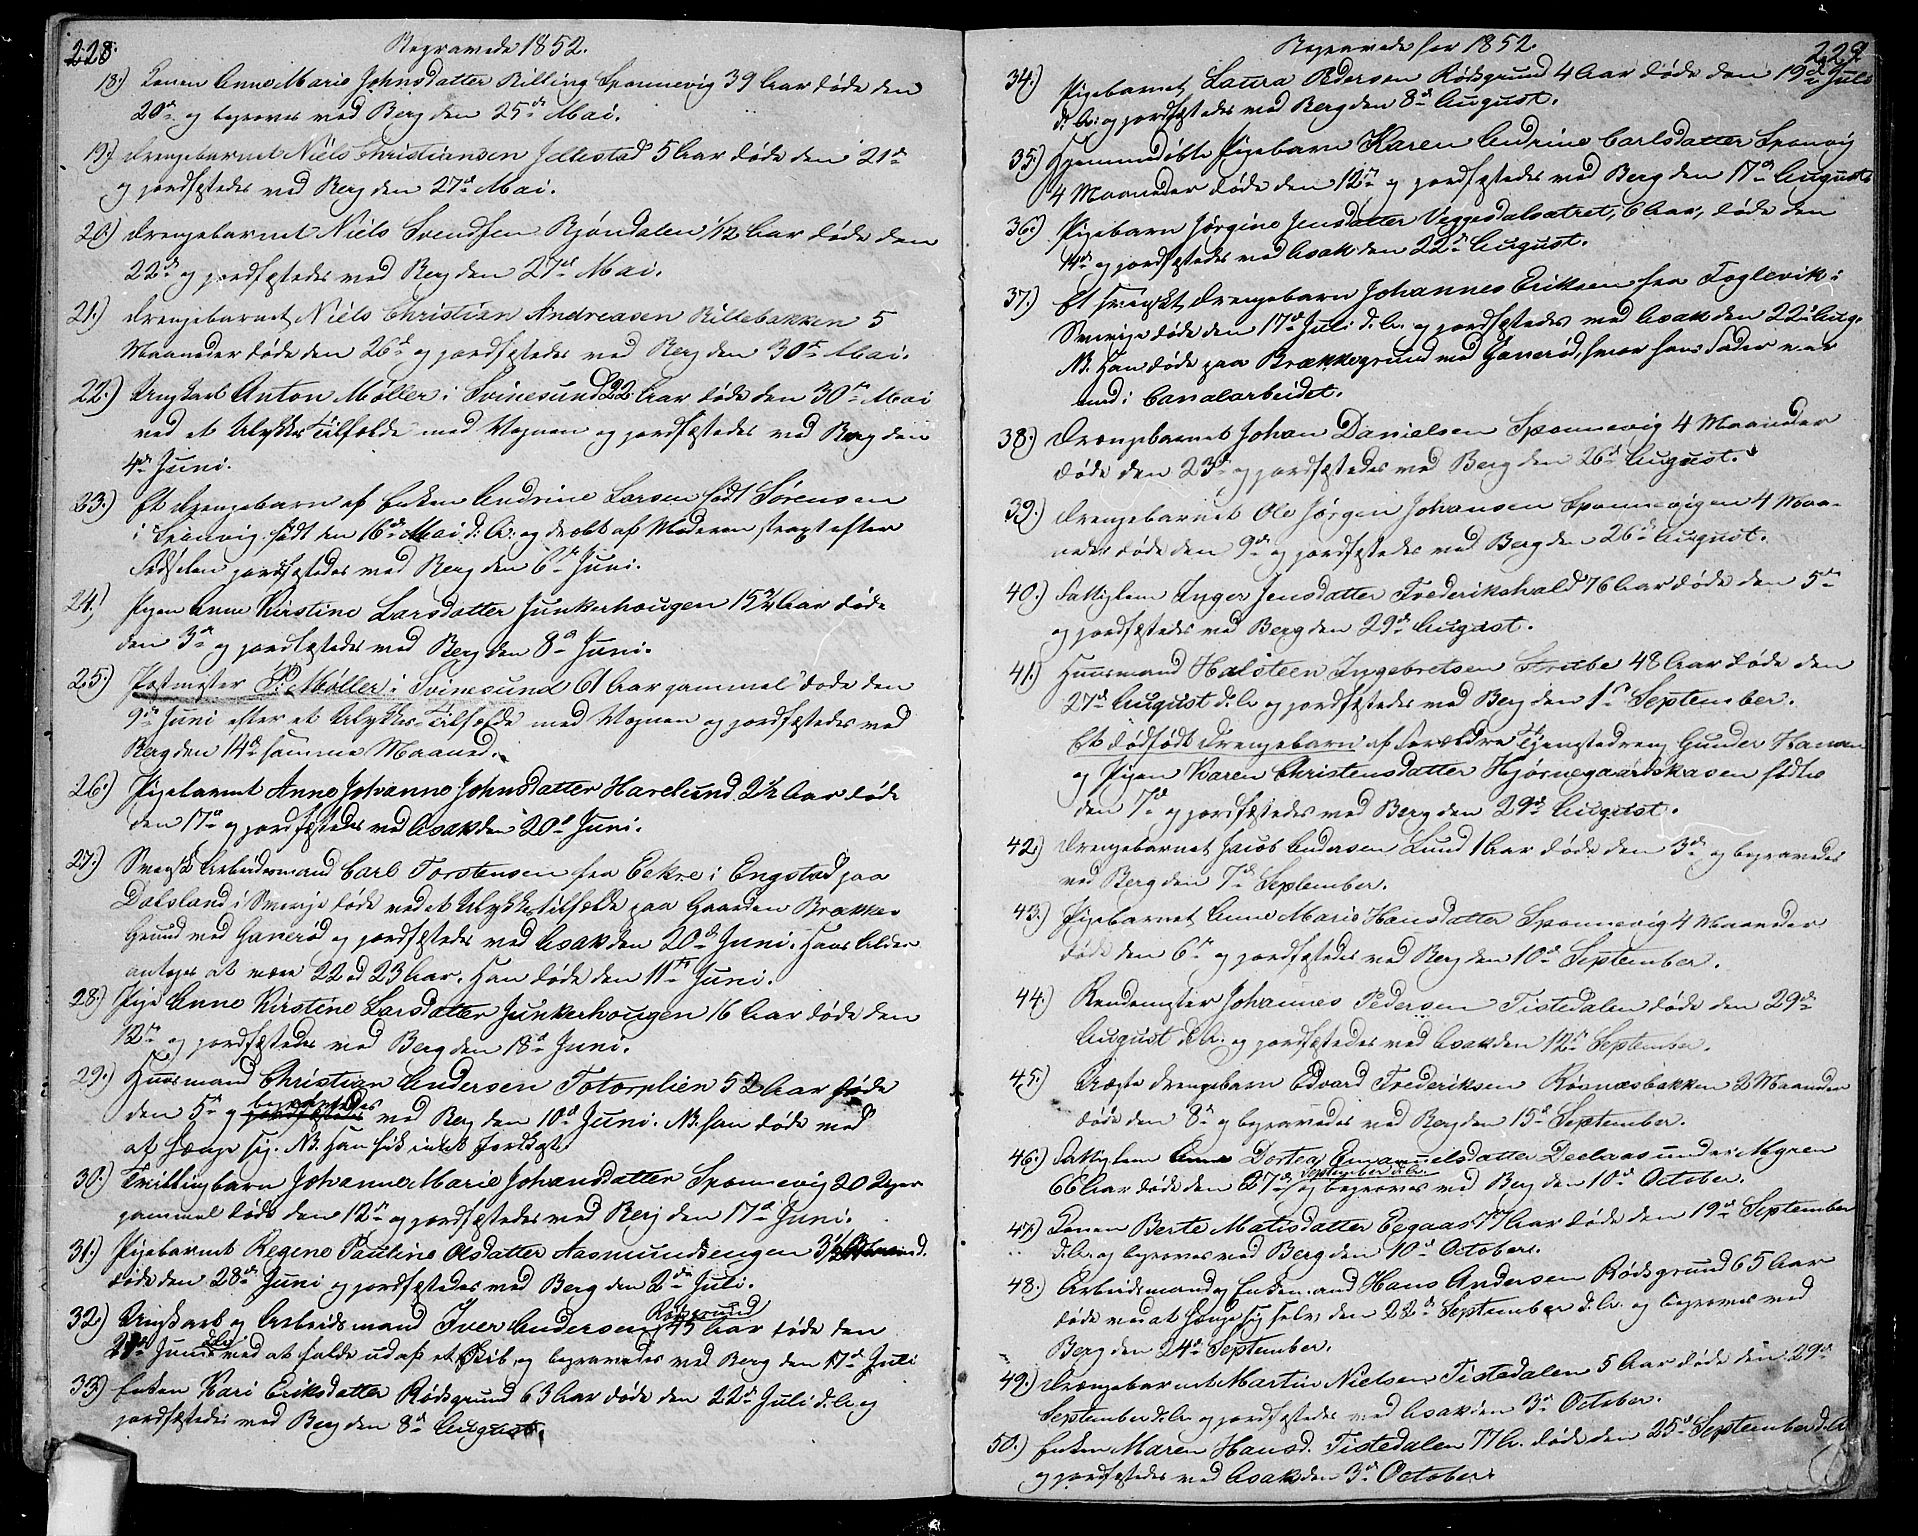 228.
Begravede 1852.
18.) Konen Anne Marie Johnsdatter Rilling Sponnevig 39 Aar døde den
20de og begroves ved Berg den 25de Mai.
19.) Drengebarnet Niels Christiansen Jellestad 5 Aar døde den 21de
og jordfæstedes ved Berg den 27de Mai.
20.) Drengebarnet Niels Svendsen Bjøndalen 1/12 Aar døde den
22de og jordfæstedes ved Berg den 27de Mai.
21.) Drengebarnet Niels Christian Andreasen Rillebakken 5
Maaneder døde den 26de og jordfæstedes ved Berg den 30te Mai.
22.) Ungkarl Anton Møller i Svinesund 22 Aar døde den 30te Mai
ved et Ulykkes Tilfælde med Vognen og jordfæstedes ved Berg den
4de Juni.
23.) Et Drengebarn af Enken Andrine Larsen født Sørensen
i Sponvig født den 16de Mai d: A: og dræbt af Moderen strax efter
Fødselen jordfæstedes ved Berg den 6te Juni.
24.) Pigen Anne Kirstine Larsdatter Junkerhougen 15 Aar døde
den 3de og jordfæstedes ved Berg den 8de Juni.
25.) Postmester P. Møller i Svinesund 61 Aar gammel døde den
9de Juni efter et Ulykkes Tilfælde med Vognen og jordfæstedes ved
Berg den 14de samme Maaned.
26.) Pigebarnet Anne Johanne Johnsdatter Harelund 2 1/2 Aar døde
den 17de og jordfæstedes ved Asak den 20de Juni.
27.) Svensk Arbeidsmand Carl Torstensen fra Eekre i Engstad paa
Dalsland i Sverige døde ved et Ulykkestilfælde paa Gaarden Brække
Grund ved Ganerød og jordfæstedes ved Asak den 20de Juni. Hans Alder
antages at være 22 a 23 Aar. Han døde den 11te Juni.
28.) Pige Anne Kirstine Larsdatter Junkerhougen 16 Aar døde den
12te og jordfæstedes ved Berg den 18de Juni.
29.) Huusmand Christian Andersen Totorplien 52 Aar døde
den 5te og jordfæstedes begravedes ved Berg den 10de Juni. NB. han døde ved
at hænge sig. NB. Han fik intet Jordkast.
30.) Tvillingbarn Johanne Marie Johansdatter Sponnevig 20 Uger
gammel døde den 12te og jordfæstedes ved Berg den 17de Juni.
31.) Pigebarnet Regine Pauline Olsdatter Aasmundsengen 3 1/2
døde den 28de Juni og jordfæstedes ved Berg den 2den Juli.
32.) Ungkarl og Arbeidsmand Iver Andersen Rødsgrund 45 Aar døde den
Juni d: A: ved at falde ud af et Skib og begravedes ved Berg den 17de Juli
33.) Enken Kari Eriksdatter Rødsgrund 63 Aar døde den 22de Juli d: A. og
jordfæstedes ved Berg den 8de August.
229
Begravede for 1852
34.) Pigebarnet Laura Pedersen Rødsgrund 4 Aar døde den 19de Juli
d: A: og jordfæstedes ved Berg den 8de August.
35.) Hjemmedøbte Pigebarn Karen Andrine Carlsdatter Sponvig
4 Maaneder døde den 12te og jordfæstedes ved Berg den 17de August
36.) Pigebarn Jørgine Jensdatter Veggesdalsætret, 6 Aar, døde den
og jordfæstedes ved Asak den 22de August.
37.) Et svenskt Drengebarn Johannes Eriksen fra Foglevik i
Sverige døde den 17de Juli d. A. og jordfæstedes ved Asak den 22de Aug.
NB. Han døde paa Brækkegrund ved Ganerød, hvor hans Fader var
med i Canalarbeidet.
38.) Drengebarnet Johan Danielsen Sponnevig 4 Maaneder
døde den 23de og jordfæstedes ved Berg den 26de August.
39.) Drengebarnet Ole Jørgen Johansen Sponnevigen 4 Maa-
neder døde den 9de og jordfæstedes ved Berg den 26de August.
40.) Fattiglem Inger Jensdatter Frederikshald 76 Aar døde den 5te
og jordfæstedes ved Berg den 29de August.
41.) Huusmand Halsteen Ingebretsen Strube 48 Aar døde den
27de August d. A. og jordfæstedes ved Berg den 1ste September.
Et dødfødt Drengebarn af Forældre Tjenestedreng Gunder Hansen
og Pigen Karen Christensdatter Hjørnegaardskasen fødtes
den 7de og jordfæstedes ved Berg den 29de August.
42.) Drengebarnet Jacob Andersen Lund 1 Aar døde den 3de og begravedes
ved Berg den 7de September.
43.) Pigebarnet Anne Marie Hansdatter Sponnevig 4 Maaneder
døde den 6te og jordfæstedes ved Berg den 10de September.
44.) Rendemester Johannes Pedersen Tistedalen døde den 29de
August d. A. og jordfæstedes ved Asak den 12te September.
45.) Uægte Drengebarn Edvard Frederiksen Rosnæsbakken 2 Maaneder
døde den 8de og begravedes ved Berg den 15de September.
46.) Fattiglem Dortea Emanuelsdatter Deelaas under Myren
66 Aar døde den 27de September d. A. og begroves ved Berg den 10de October.
47.) Konen Berte Matisdatter Eegaas 77 Aar døde den 19de September
d. A. og begroves ved Berg den 10de October.
48.) Arbeidsmand og Enkemand Hans Andersen Rødsgrund 65 Aar
døde ved at hænge sig selv den 22de September d. A. og begroves ved
Berg den 24de September.
49.) Drengebarnet Martin Nielsen Tistedalen 5 Aar døde den 29de
September d. A. og jordfæstedes ved Asak den 3de October.
50.) Enken Maren Hansd. Tistedalen 77 A. døde den 25de September d. A.
og jordfæstedes ved Asak den 3de October.